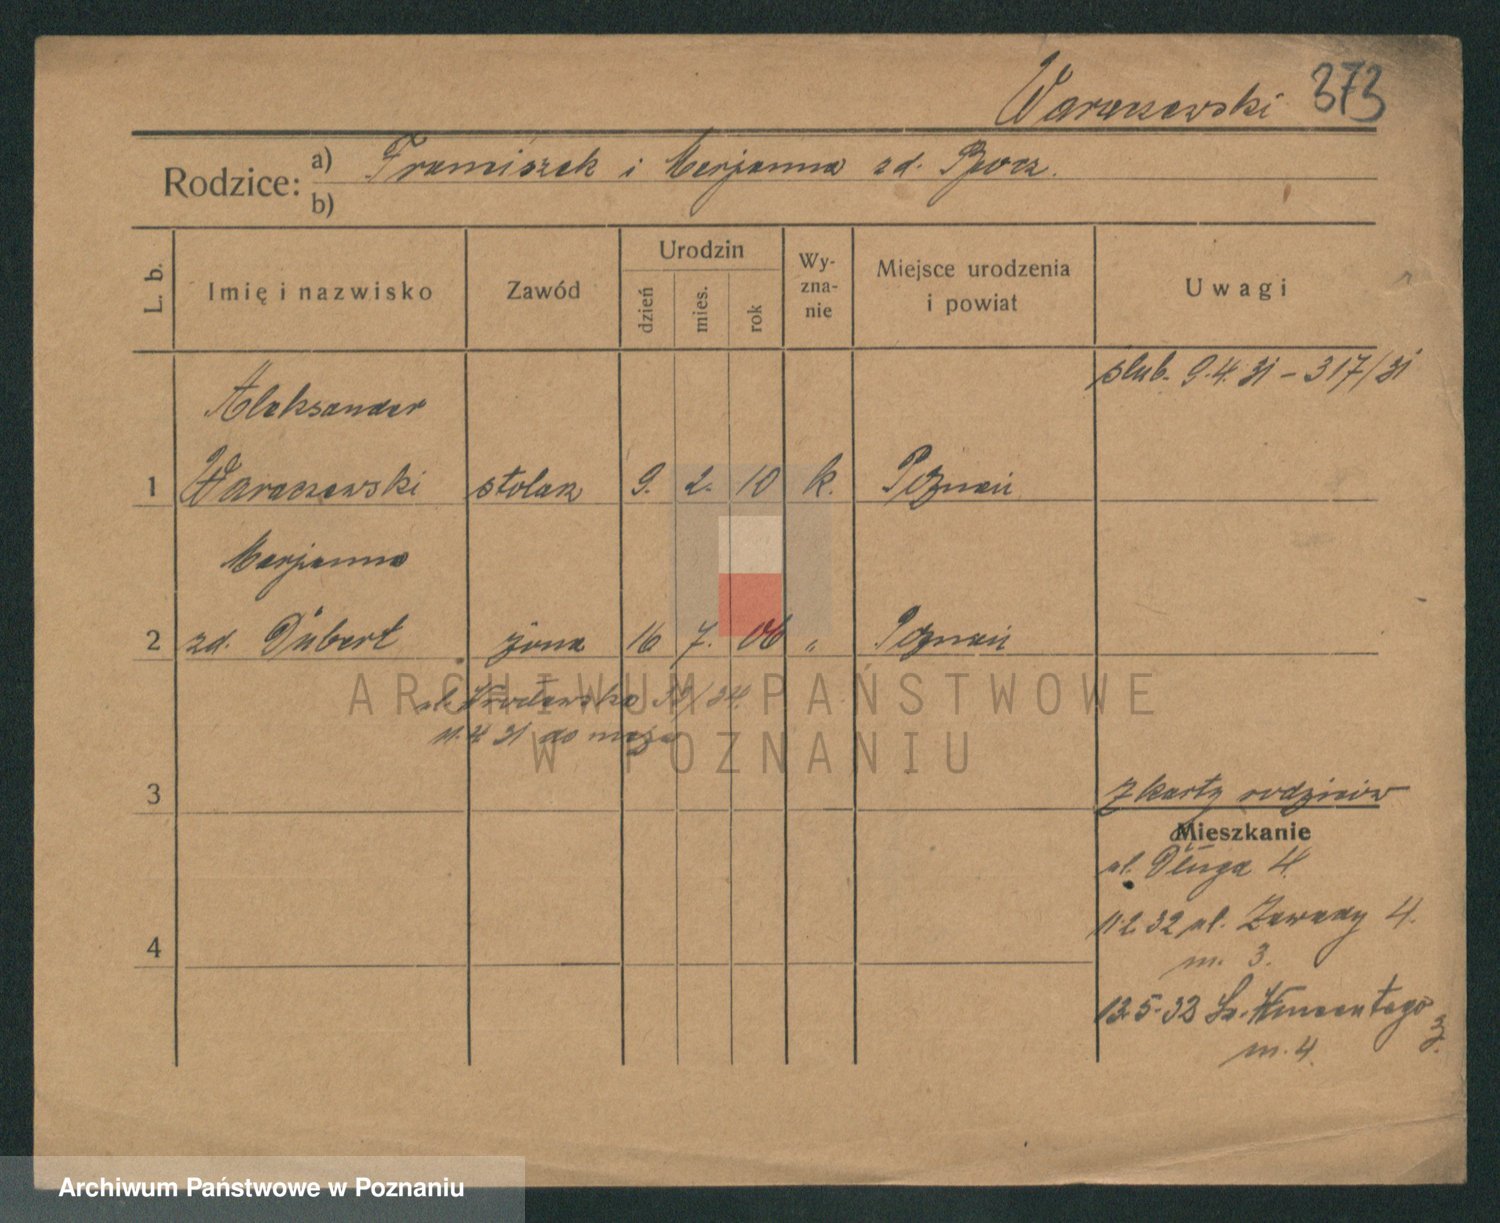 Waraczewski 373
Rodzice: a) Franciszek i Marjanna zd.
b)
L. b. Imię i nazwisko Zawód Urodzin dzień mies. rok Wy-zna-nie Miejsce urodzenia i powiat Uwagi
ślub. 9.4.31 – 317/31
Aleksander
1 Waraczewski stolarz 9. 2. 10 k. Poznań
Marjanna
2 zd. Dubert żona 16 7. 06 „ Poznań
ul. Wrocławska 33/34.
11.4.31 do męża
ARCHIWUM PAŃSTWOWE
W POZNANIU
3
Z karty rodziców
Mieszkanie
ul. Długa 4.
11.2.32 ul. Zawady 4.
m. 3.
4
13.5.33 Św. Wincentego 3.
m. 4.
Archiwum Państwowe w Poznaniu